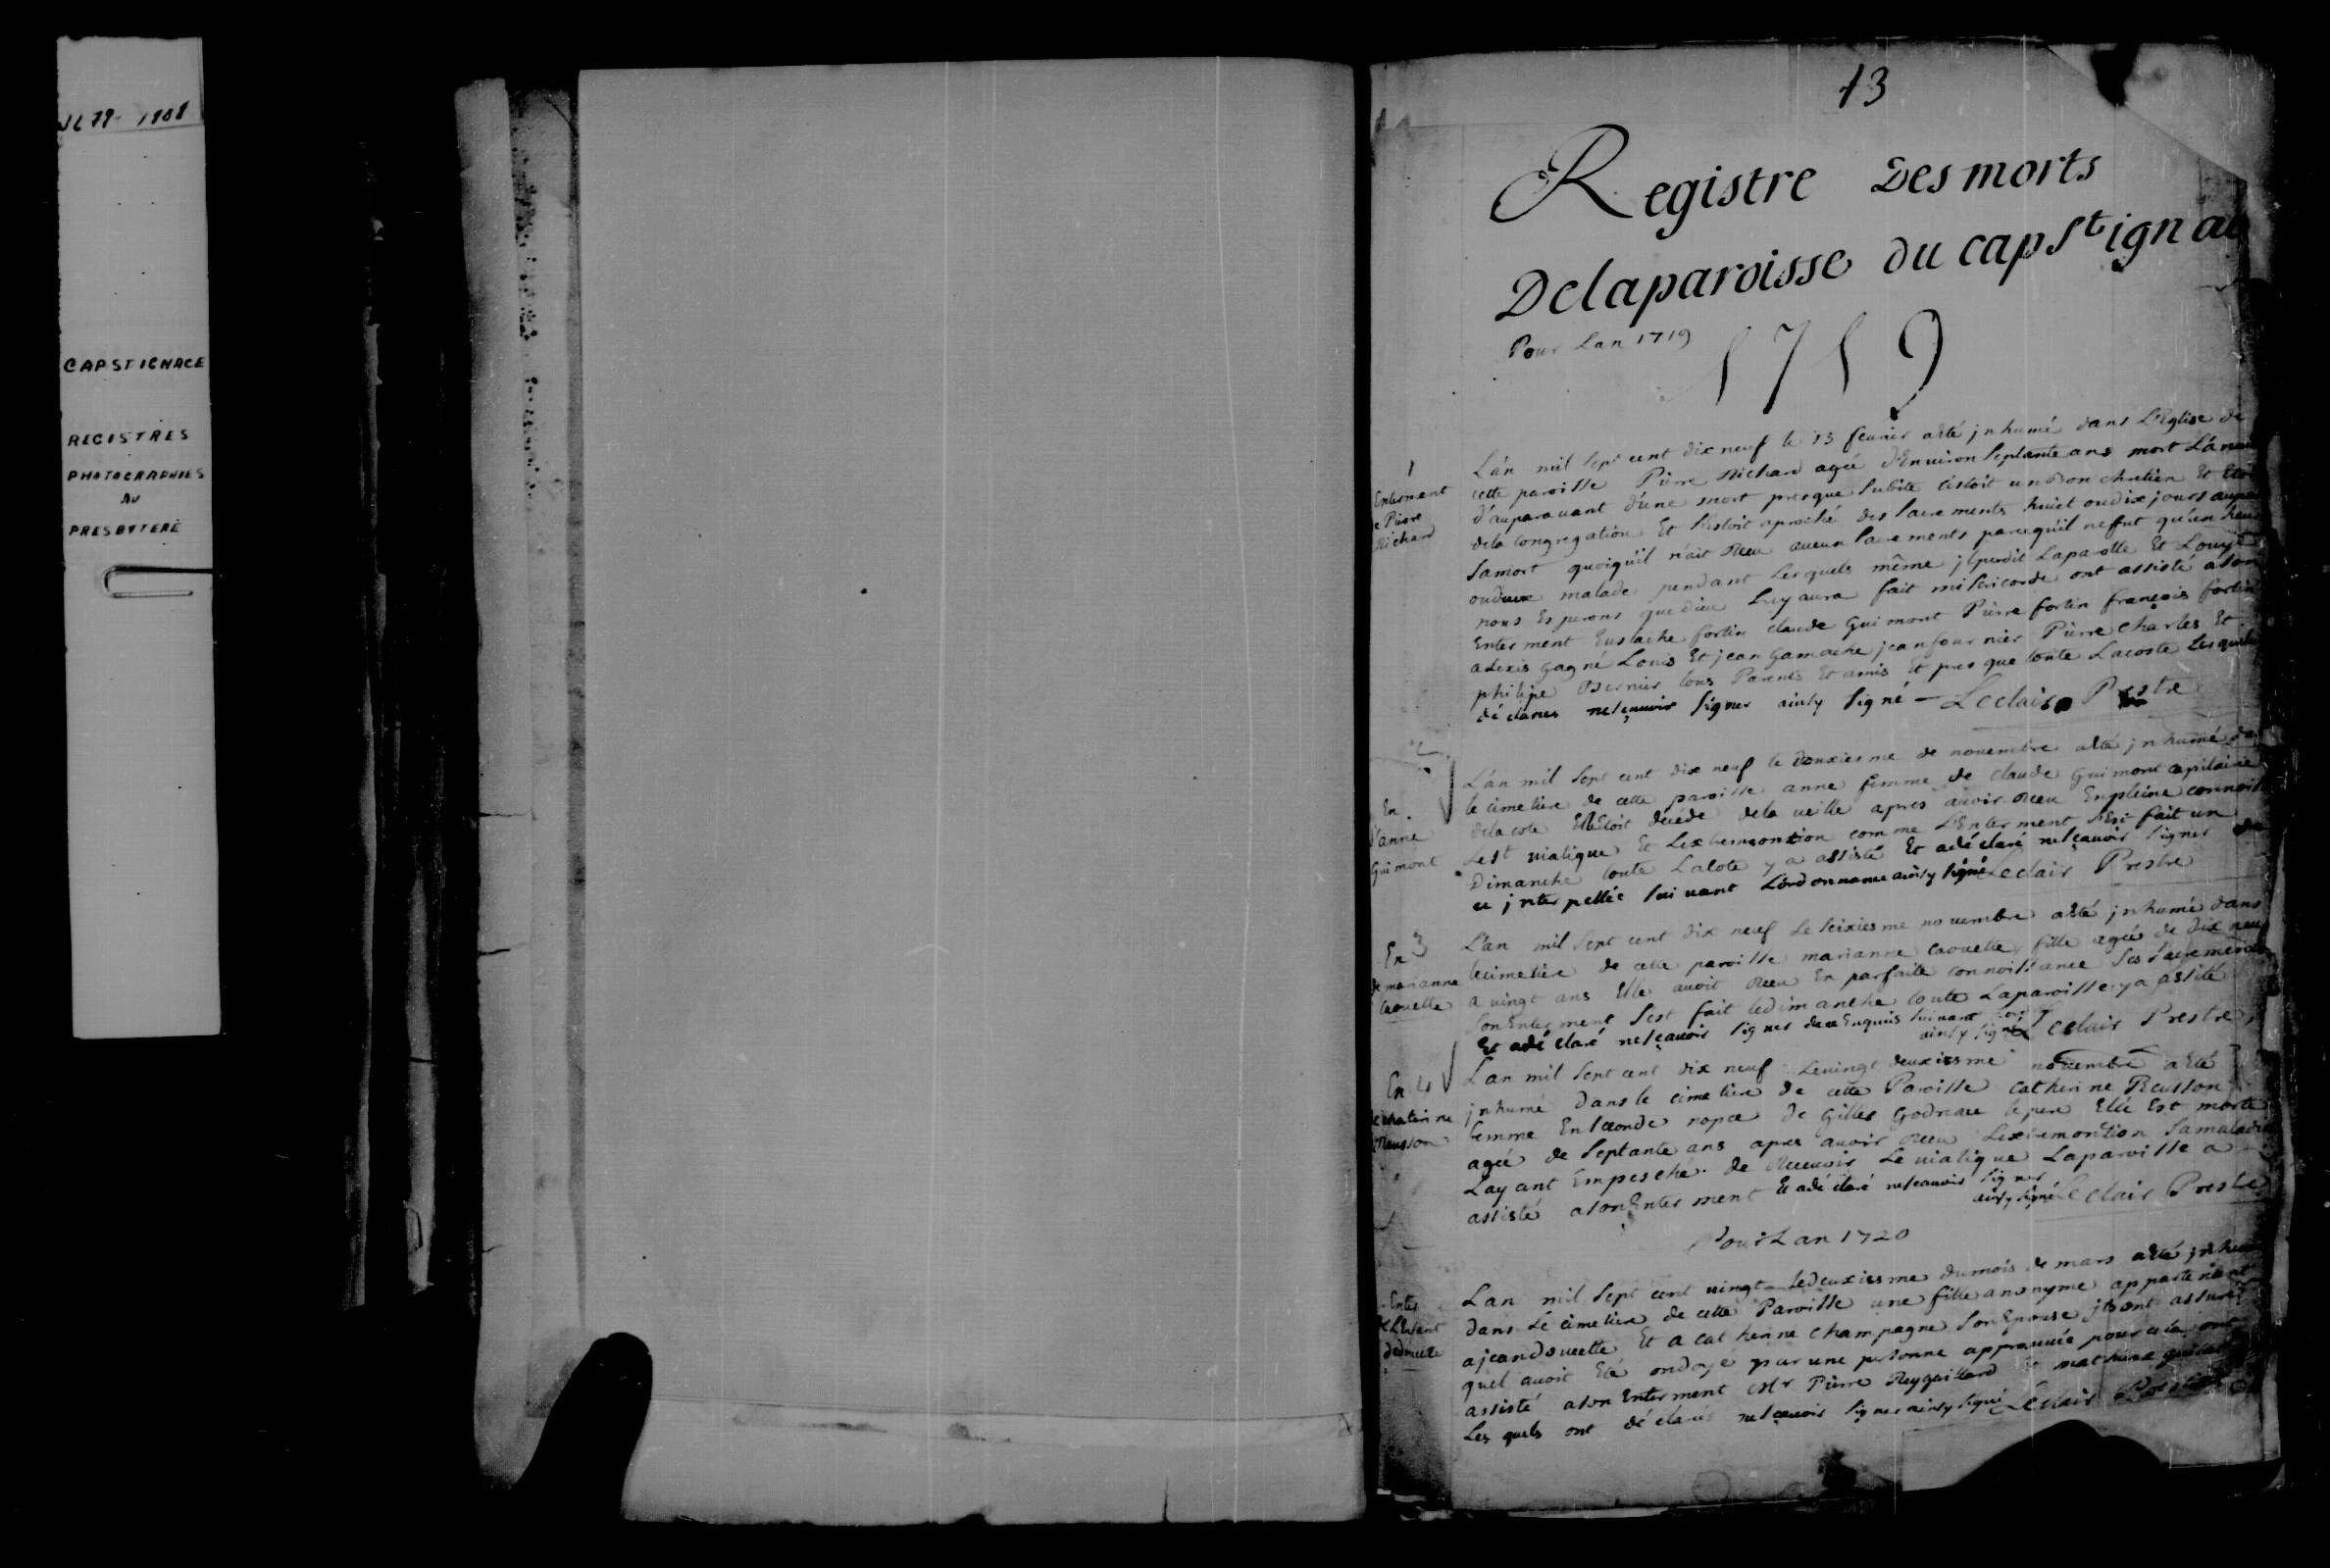 1679-1908
CAP ST IGNACE
REGISTRES
PHOTOGRAPHIES
AU
PRESBYTERE
13
Registre Des morts
De la paroisse du cap St ignac
Pour Lan 1719
1719
1
Enterment
e Pierre
Richard
L'an mil sept cent dix neuf le 13 feurier a été jnhumé dans L'Eglise de
cette paroisse Pierre Richard agée d'Enuiron septante ans mort La
d'auparauant d'une mort presque subite c'estoit un bon chretien Et
de la congregation Et s'estoit aproché des sacrements huict ou dix jours
sa mort quoiqu'il n'ait Receu aucun sacrements parcequ'il ne fut qu'un heur
ou deux malade pendant Lesquels même jl perdit La parolle Et L'ouye
nous Esperons que dieu Luy aura fait misericorde ont assisté a son
Enterment Eustache fortin claude Guimont Pierre fortin françois fortin
alexis gagné Louis Et jean Gamache jean fournier Pierre charles Et
philipe Bernier tous Parents Et amis Et presque toute La coste Lesquels
déclarés ne sçauoir signer ainsy signé — Leclair Prestre
2
En
d'anne
Guimont
L'an mil sept cent dix neuf le deuxiesme de nouembre a été jnhumé
le cimetiere de cette paroisse anne femme de claude Guimont capitaine
de la cote Elle Etoit décédé de la ueille apres auoir Receu En pleine
Le st uiatique Et Lextremontion comme L'Enterment s'est fait un
Dimanche toute La Cote y a assisté Et a déclaré ne sçauoir signer
ce jnterpellée suiuant L'ordonnance ainsy signé Leclair Prestre
En 3
de marianne
Caouette
L'an mil sept cent dix neuf Le seixiesme nouembre a été jnhumé dans
le cimetiere de cette paroisse marianne caouette fille agée de dix neuf
a uingt ans Elle auoit Receu En parfaite connoissance ses sacrements
son Enterment s'est fait le dimanche toute La paroisse y a assité
Et a déclaré ne sçauoir signer de ce Enquis suiuant
ainsy signé Leclair Prestre
En 4
de chaterine
Reusson
L'an mil sept cent dix neuf Le uingt deuxiesme nouembre a Eté
jnhumé dans le cimetiere de cette Paroisse catherine Reusson
femme En seconde nopce de Gilles Godreau le pere Elle Est morte
agée de septante ans apres auoir Receu Lextremontion sa maladie
L'ayant Empesché de Receuoir Le uiatique La paroisse a
assisté a son Enterment Et a déclaré ne scauoir signer
ainsy signé Leclair Prestre
Pour Lan 1720
Enter
de L'enfant
L'an mil sept cent uingt le deuxiesme du mois de mars a Eté
dans Le cimetiere de cette Paroisse une fille anonyme appartenant
a jean douette Et a catherine champagne son Epouse jls ont assuré
quel auoit Eté ondoyé par une personne approuuée pour cela ont
assisté a son Enterment Pierre Reygaillard
Lesquels ont déclarés ne sçauoir signer ainsy signé Leclair Prestre